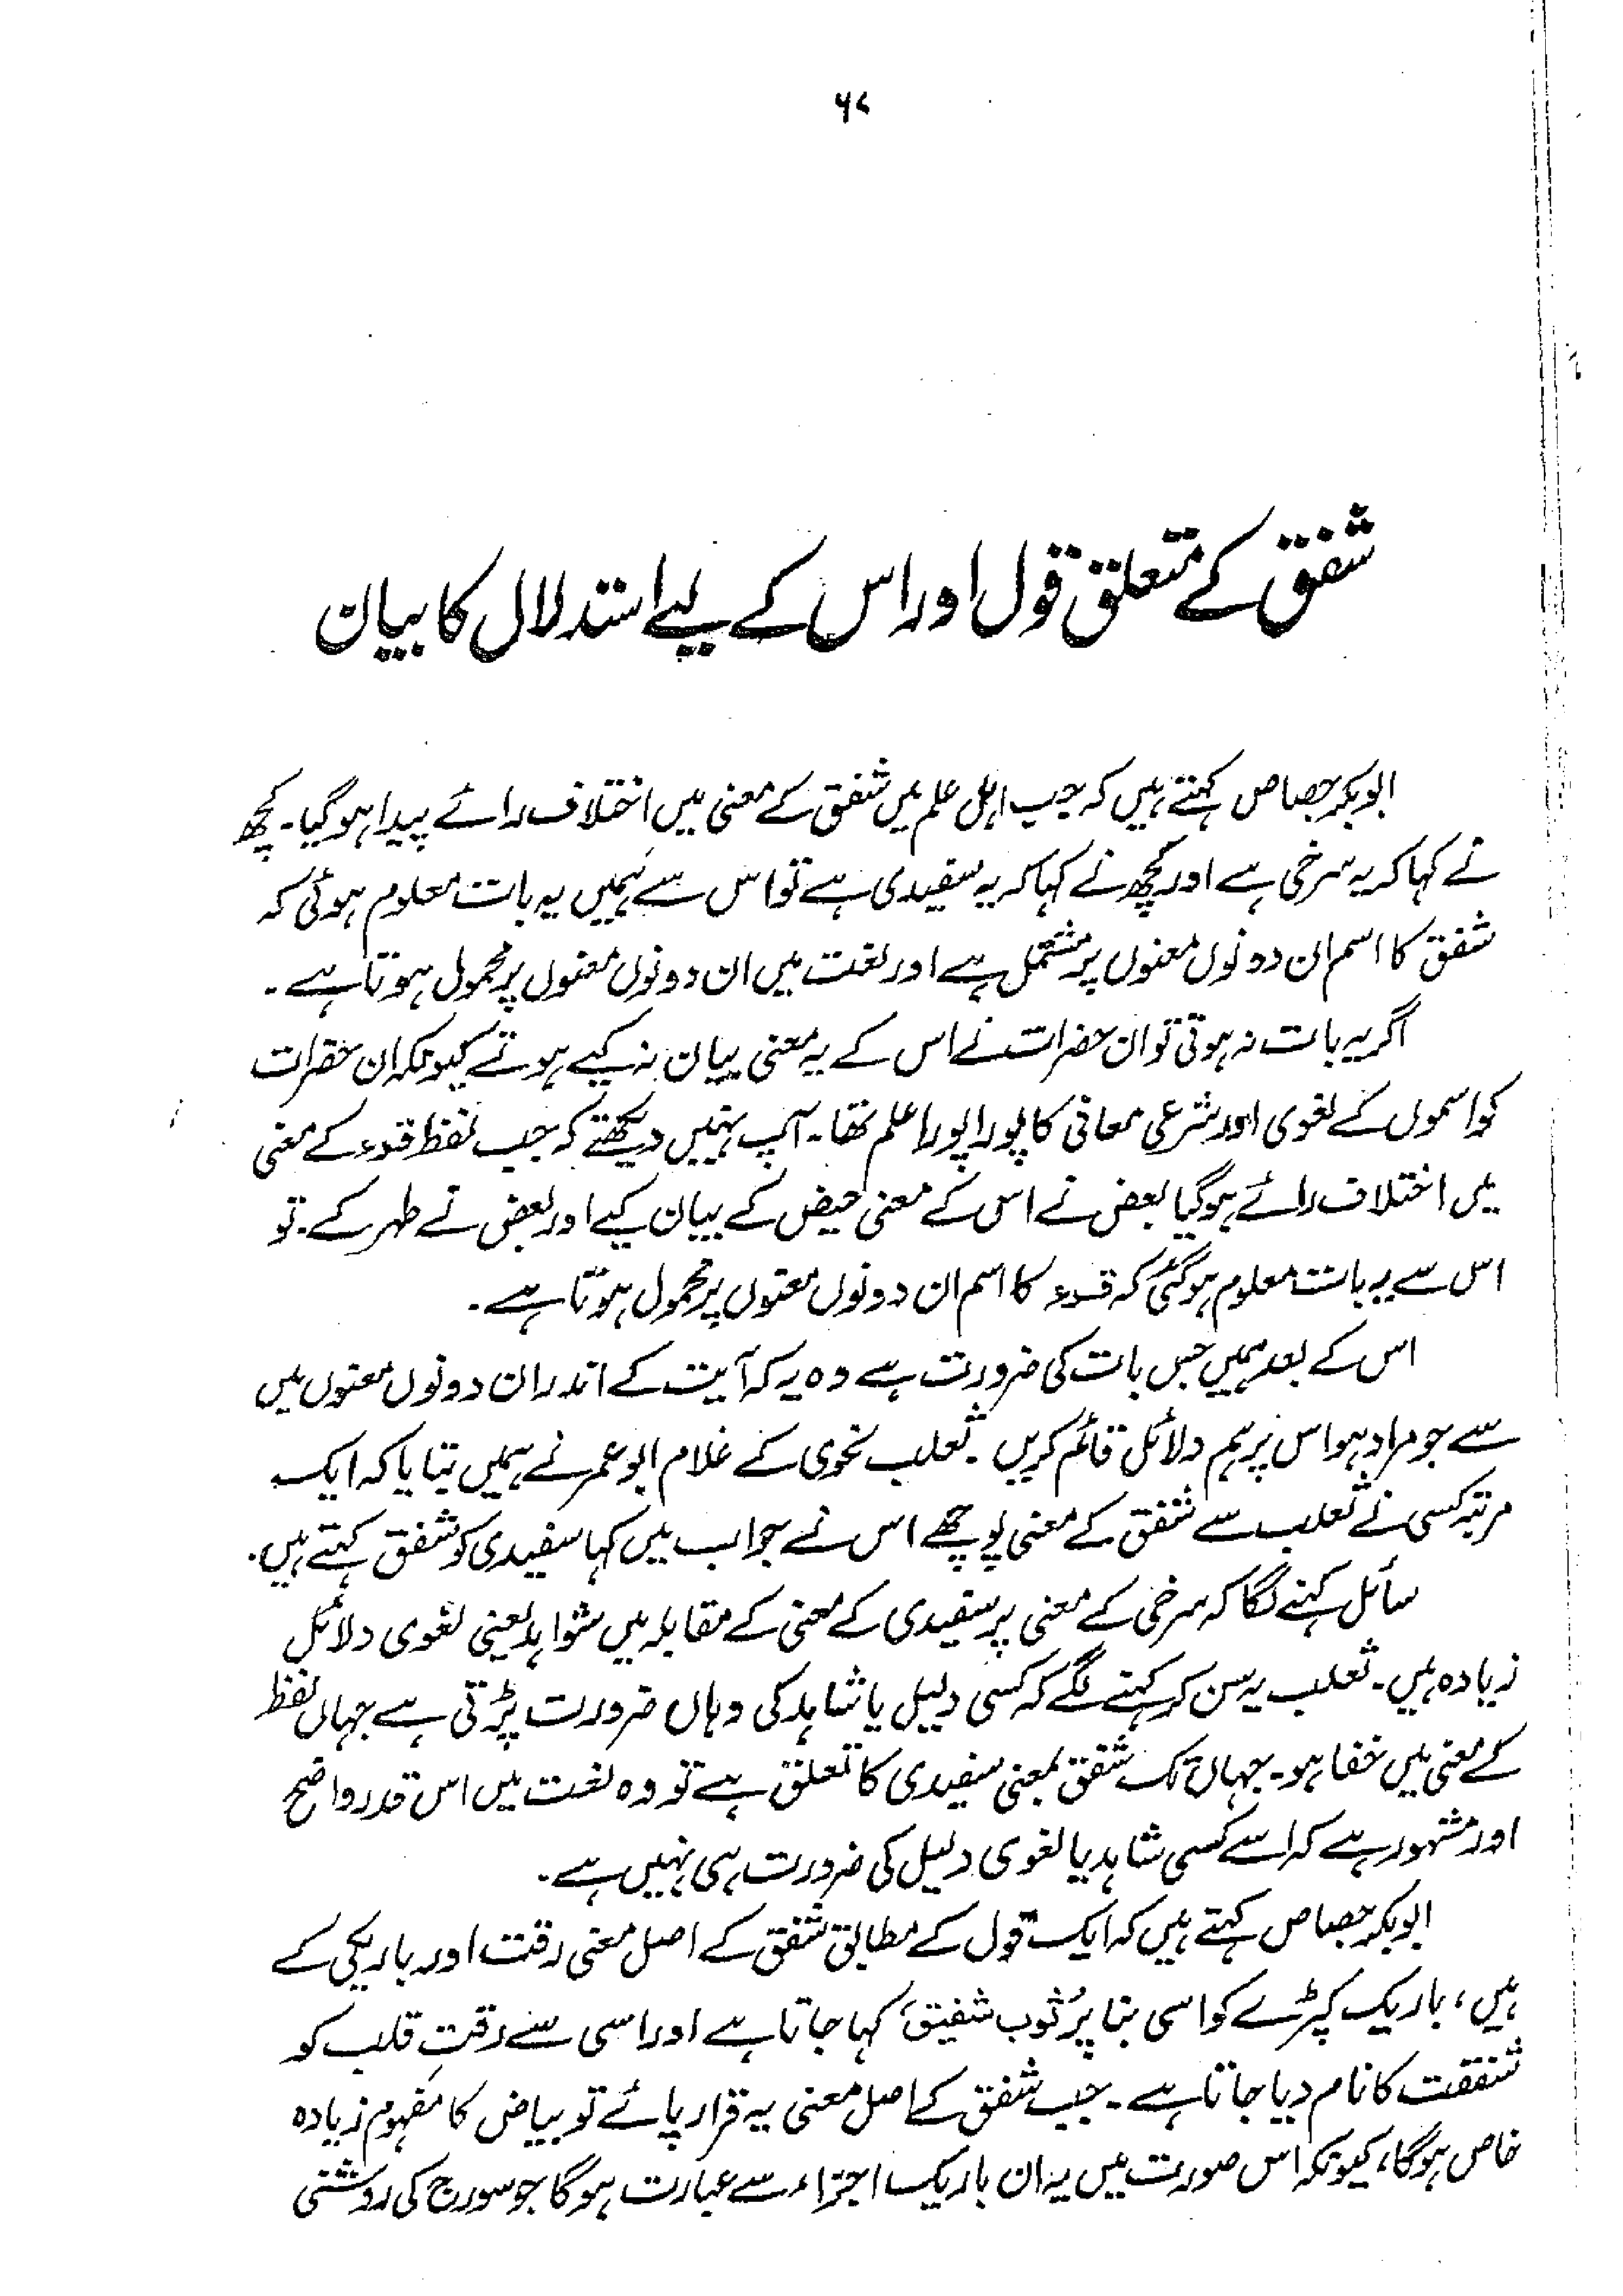 ۶۷
شفق کے متعلق قول اور اس کے لیے استدلال کا بیان
ابوبکر جصاص کہتے ہیں کہ جب اہل علم میں شفق کے معنی میں اختلاف رائے پیدا ہوگیا۔ کچھ
نے کہا کہ یہ سرخی ہے اور کچھ نے کہا کہ یہ سفیدی ہے تو اس سے ہمیں یہ بات معلوم ہوئی کہ
شفق کا اسم ان دونوں معنوں پر مشتمل ہے اور لغت میں ان دونوں معنوں پر محمول ہوتا ہے۔
اگر یہ بات نہ ہوتی تو ان حضرات نے اس کے یہ معنی بیان نہ کیے ہوتے کیونکہ ان حضرات
کو اسموں کے لغوی اور شرعی معانی کا پورا پورا علم تھا۔ آپ نہیں دیکھتے کہ جب لفظ قدء کے معنی
میں اختلاف رائے ہوگیا بعض نے اس کے معنی حیض کے بیان کیے اور بعض نے طہر کے۔ تو
اس سے یہ بات معلوم ہوگئی کہ قرء کا اسم ان دونوں معنوں پر محمول ہوتا ہے۔
اس کے بعد ہمیں جس بات کی ضرورت ہے وہ یہ کہ آیت کے اندر ان دونوں معنوں میں
سے جو مراد ہو اس پر ہم دلائل قائم کریں۔ ثعلب نحوی کے غلام ابوعمر نے ہمیں بتایا کہ ایک
مرتبہ کسی نے ثعلب سے شفق کے معنی پوچھے اس نے جواب میں کہا سفیدی کو شفق کہتے ہیں۔
سائل کہنے لگا کہ سرخی کے معنی پر سفیدی کے معنی کے مقابلہ میں شواہد یعنی لغوی دلائل
زیادہ ہیں۔ ثعلب یہ سن کر کہنے لگے کہ کسی دلیل یا شاہد کی وہاں ضرورت پڑتی ہے جہاں لفظ
کے معنی میں خفا ہو۔ جہاں تک شفق بمعنی سفیدی کا تعلق ہے تو وہ لغت میں اس قدر واضح
اور مشہور ہے کہ اسے کسی شاہد یا لغوی دلیل کی ضرورت ہی نہیں ہے۔
ابوبکر جصاص کہتے ہیں کہ ایک قول کے مطابق شفق کے اصل معنی رقت اور باریکی کے
ہیں، باریک کپڑے کو اسی بنا پر ُثوب شفیق، کہا جاتا ہے اور اسی سے رقتِ قلب کو
شفقت کا نام دیا جاتا ہے۔ جب شفق کے اصل معنی یہ قرار پائے تو بیاض کا مفہوم زیادہ
خاص ہوگا، کیونکہ اس صورت میں یہ ان باریک اجزاء سے عبارت ہوگا جو سورج کی روشنی